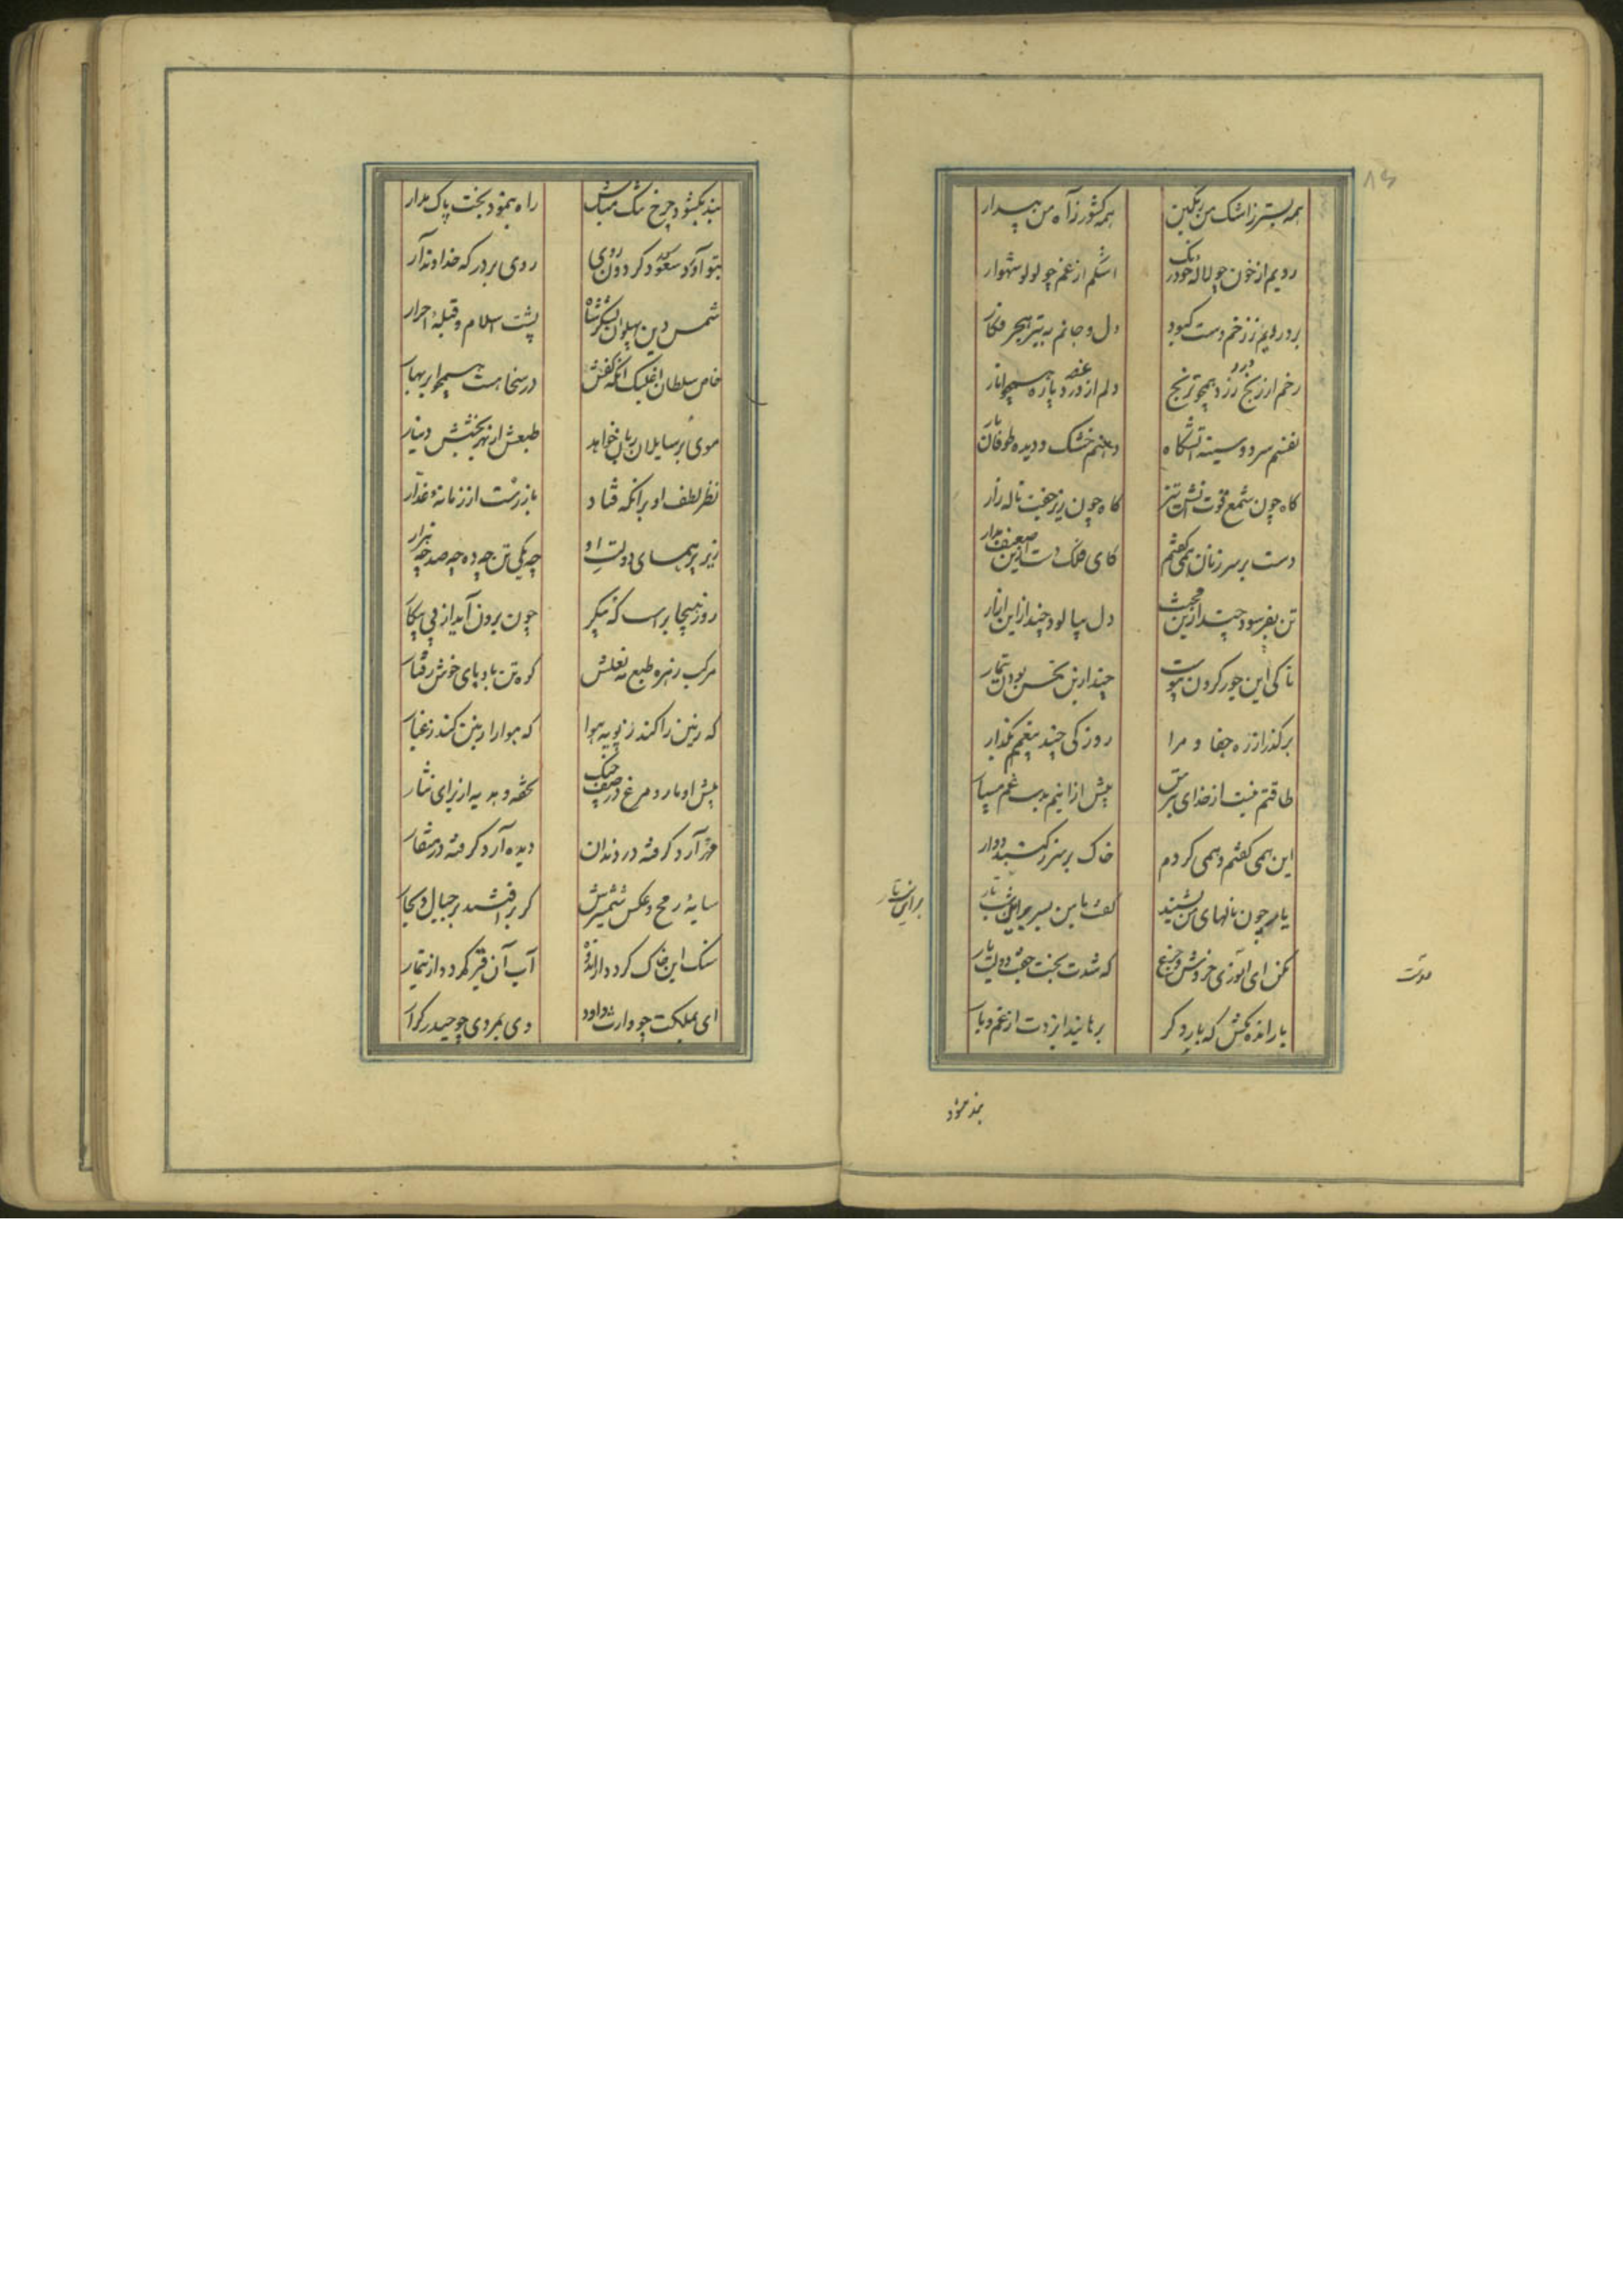 ۸۴
همه بستر ز اشک من رنگین همه کشور ز آه من بیدار
رویم از خون چو لاله خودرنگ اشکم از غم چو لولو شهوار
بر و رویم ز زخم دست کبود دل و جانم به تیر هجر فکار
رخم از رنج زرد همچو ترنج دلم از درد پاره همچو انار
نفسم سرد و سینه آتشگاه دهنم خشک و دیده طوفان بار
گاه چون شمع قوت آتش تیز گاه چون زیر جفت ناله زار
دست بر سر زنان همی گفتم کای فلک دست ازین ضعیف بدار
تن بفرسود چند ازین محنت دل بپالود چند از این آزار
تا کی این جور کردن پیوست چند ازین نحس بودن تیمار
برگذر از ره جفا و مرا روزکی چند بی غمم بگذار
طاقتم نیست از خدای بترس بیش ازینم بدست غم مسپار
این همی گفتم و همی کردم خاک بر سر ز گنبد دوار
یارم چون نالهای من بشنید گفت با من بسر
برای شب تار
مکن ای انوری خروش و جزع که شدت بخت جفت و دولت یار
مدت
بار انده مکش که بار دگر برهانید ایزدت از غم و بار
بند بگشود
بند بگشود چرخ تنگ مباش راه بنمود بخت باک مدار
بتو آورد سعد گردون روی روی بر درگه خداوند آر
شمس دین پهلوان لشکر شاه پشت اسلام و قبله احرار
خاص سلطان اغلبک آنکه کفش در سخا هست همچو ابر بهار
موی بر سایلان زبان خواهد طبعش از بهر بخشش دینار
نظر لطف او بر آنکه فتاد باز رست از زمانه غدار
زیر پر همای دولت او چه یکی تن چه ده چه صد چه هزار
روز هیجا براسب که پیکر چون برون آید از پی پیکار
مرکب زهره طبع مه نعلش کوه تن باد پای خوش رفتار
که زمین را کند ز پویه هوا که هوا را زمین کند ز غبار
پیش او مار و مرغ در صف جنگ تحفه و هدیه از برای نثار
مهره آرد گرفته در دندان دیده آرد گرفته در منقار
سایه رمح و عکس شمشیرش گر برافتد بر جبال و بحار
سنگ این خاک گردد از انده آب آن قیر گردد از تیمار
ای بملکت چو وارث داود وی بمردی چو حیدر کرار